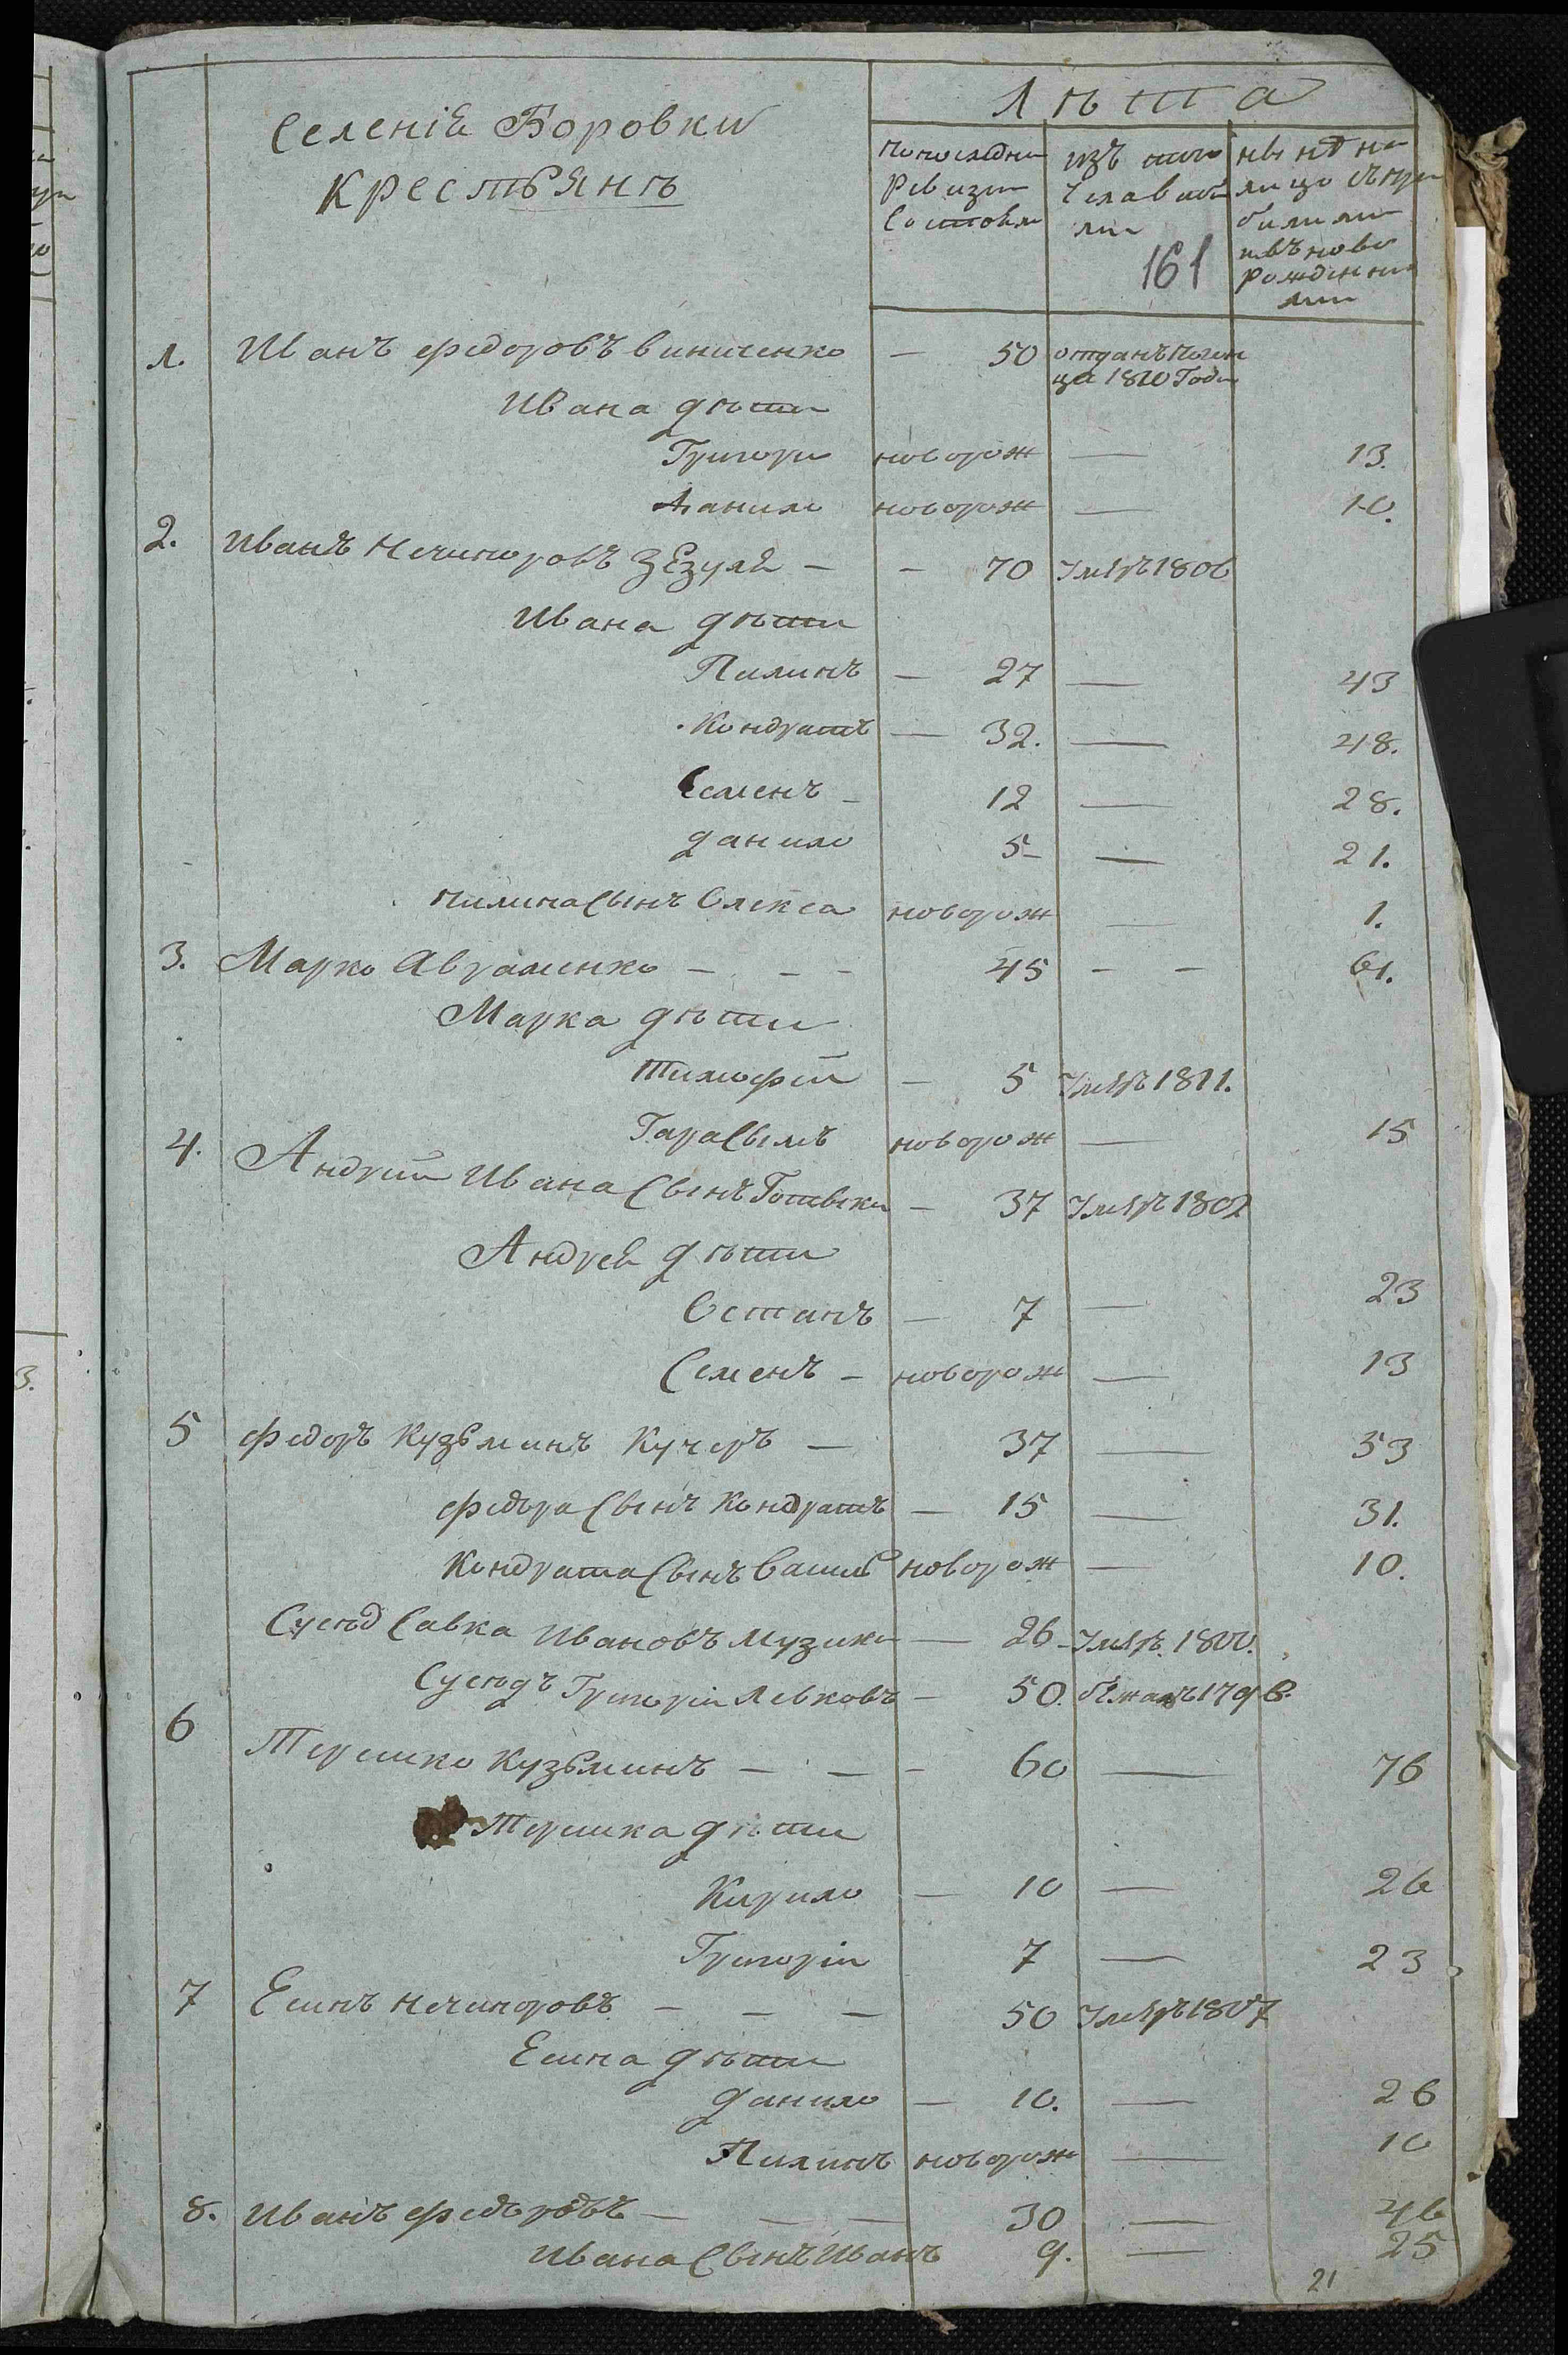 Лѣта
Селенія Боровки
Крестьянъ
попоследни ревизіи состояли
изъ того числа выбыли
нынѣ на лицо съ прибылими и въновь рожденними
161
1. Иванъ Федоровъ Винниченко — 50 отданъ 1810 Года
Ивана дѣти
Григори новорож — 13.
Данило новорож — 10.
2. Иванъ Нечипоровъ Зезуля — — 70 Умеръ 1806
Ивана дѣти
Пилипъ — 27 — 43
Кондратъ — 32. — 48.
Семенъ — 12 — 28.
Данило 5 — 21.
Пилипа Сынъ Олекса новорож — 1.
3. Марко Авраменко — — — 45 — — 61.
Марка дѣти
Тимофѣй — 5 Умеръ 1811.
Гарасымъ новорож — 15
4. Андрій Ивана Сынъ — 37 Умеръ 1802
Андрея дѣти
Остапъ — 7 — 23
Семенъ — новорож — 13
5 Федоръ Кузьминъ Кучеръ — 37 — 53
Федора Сынъ Кондратъ — 15 — 31.
Кондрата Сынъ Василь новорож — 10.
Сусѣд Савка Ивановъ Музика — 26 — Умеръ 1800.
Сусѣдъ Григорій Левковъ — 50. бежалъ 1796.
6 Терешко Кузьминъ — — — 60 — 76
Терешка дѣти
Кирило — 10 — 26
Григорій 7 — 23
7 Есипъ Нечипоровъ — — — 50 Умеръ 1807
Есипа дѣти
Данило — 10. — 26
Пилипъ новорож — 10
8. Иванъ Федоровъ — — — 30 — 46
Ивана Сынъ Иванъ 9. — 25
21